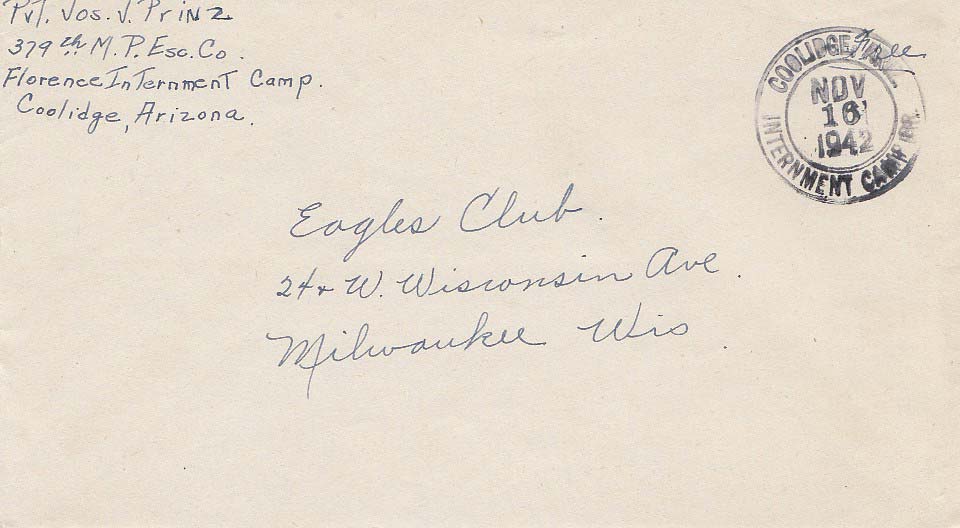 Pvt. Jos. J. Prinz
379th M.P. Esc. Co.
Florence Internment Camp.
Coolidge, Arizona.
Free
COOLIDGE, ARIZ.
NOV
16
1942
INTERNMENT CAMP BR.
Eagles Club.
24 & W. Wisconsin Ave.
Milwaukee Wis.